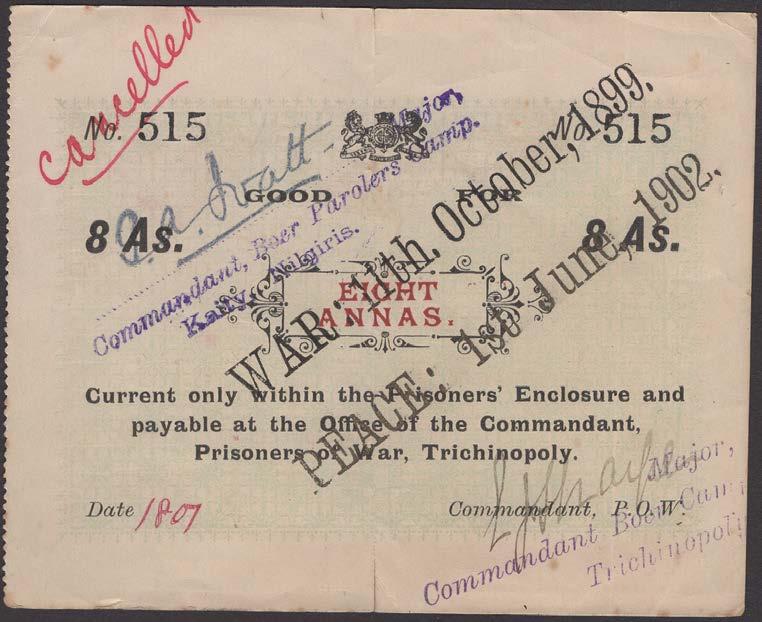 cancelled
No. 515
No. 515
GOOD FOR
8 As.
8 As.
EIGHT
ANNAS.
Current only within the Prisoners' Enclosure and
payable at the Office of the Commandant,
Prisoners of War, Trichinopoly.
Date
Commandant, P.O.W.
Major,
Commandant, Boer Parolers Camp.
Kaity, Nilgiris.
WAR: 11th. October, 1899.
PEACE: 1st June, 1902.
Major,
Commandant Boer Camp
Trichinopoly